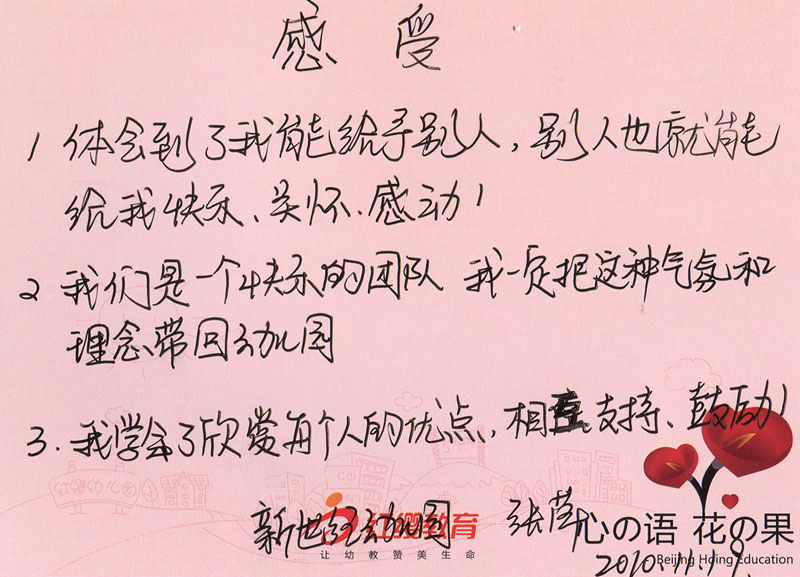 感 受
1 体会到了我能给予别人,别人也就能
给我快乐、关怀、感动!
2 我们是一个快乐的团队 我一定把这种气氛和
理念带回幼儿园
3. 我学会了欣赏每个人的优点,相互支持、鼓励!
红缨幼儿园
新世纪幼儿园 张莹
红缨教育
让幼教赞美生命
心の语 花の果
2010.11.19
Beijing Hoing Education